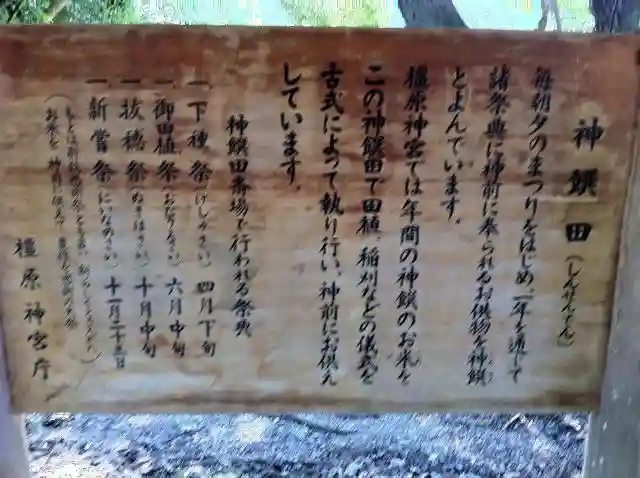 神饌田（しんせんでん）
毎朝夕のまつりをはじめ、一年を通じて
諸祭典に神前に奉られるお供物を神饌
とよんでいます。
橿原神宮では年間の神饌のお米を
この神饌田で田植、稲刈などの儀式を
古式によって執り行い、神前にお供え
しています。
神饌田斎場で行われる祭典
一、下種祭（げしゅさい）四月下旬
一、御田植祭（おたうえさい）六月中旬
一、抜穂祭（ぬきほさい）十月中旬
一、新嘗祭（にいなめさい）十一月二十三日
お米を 神前に
橿原神宮庁